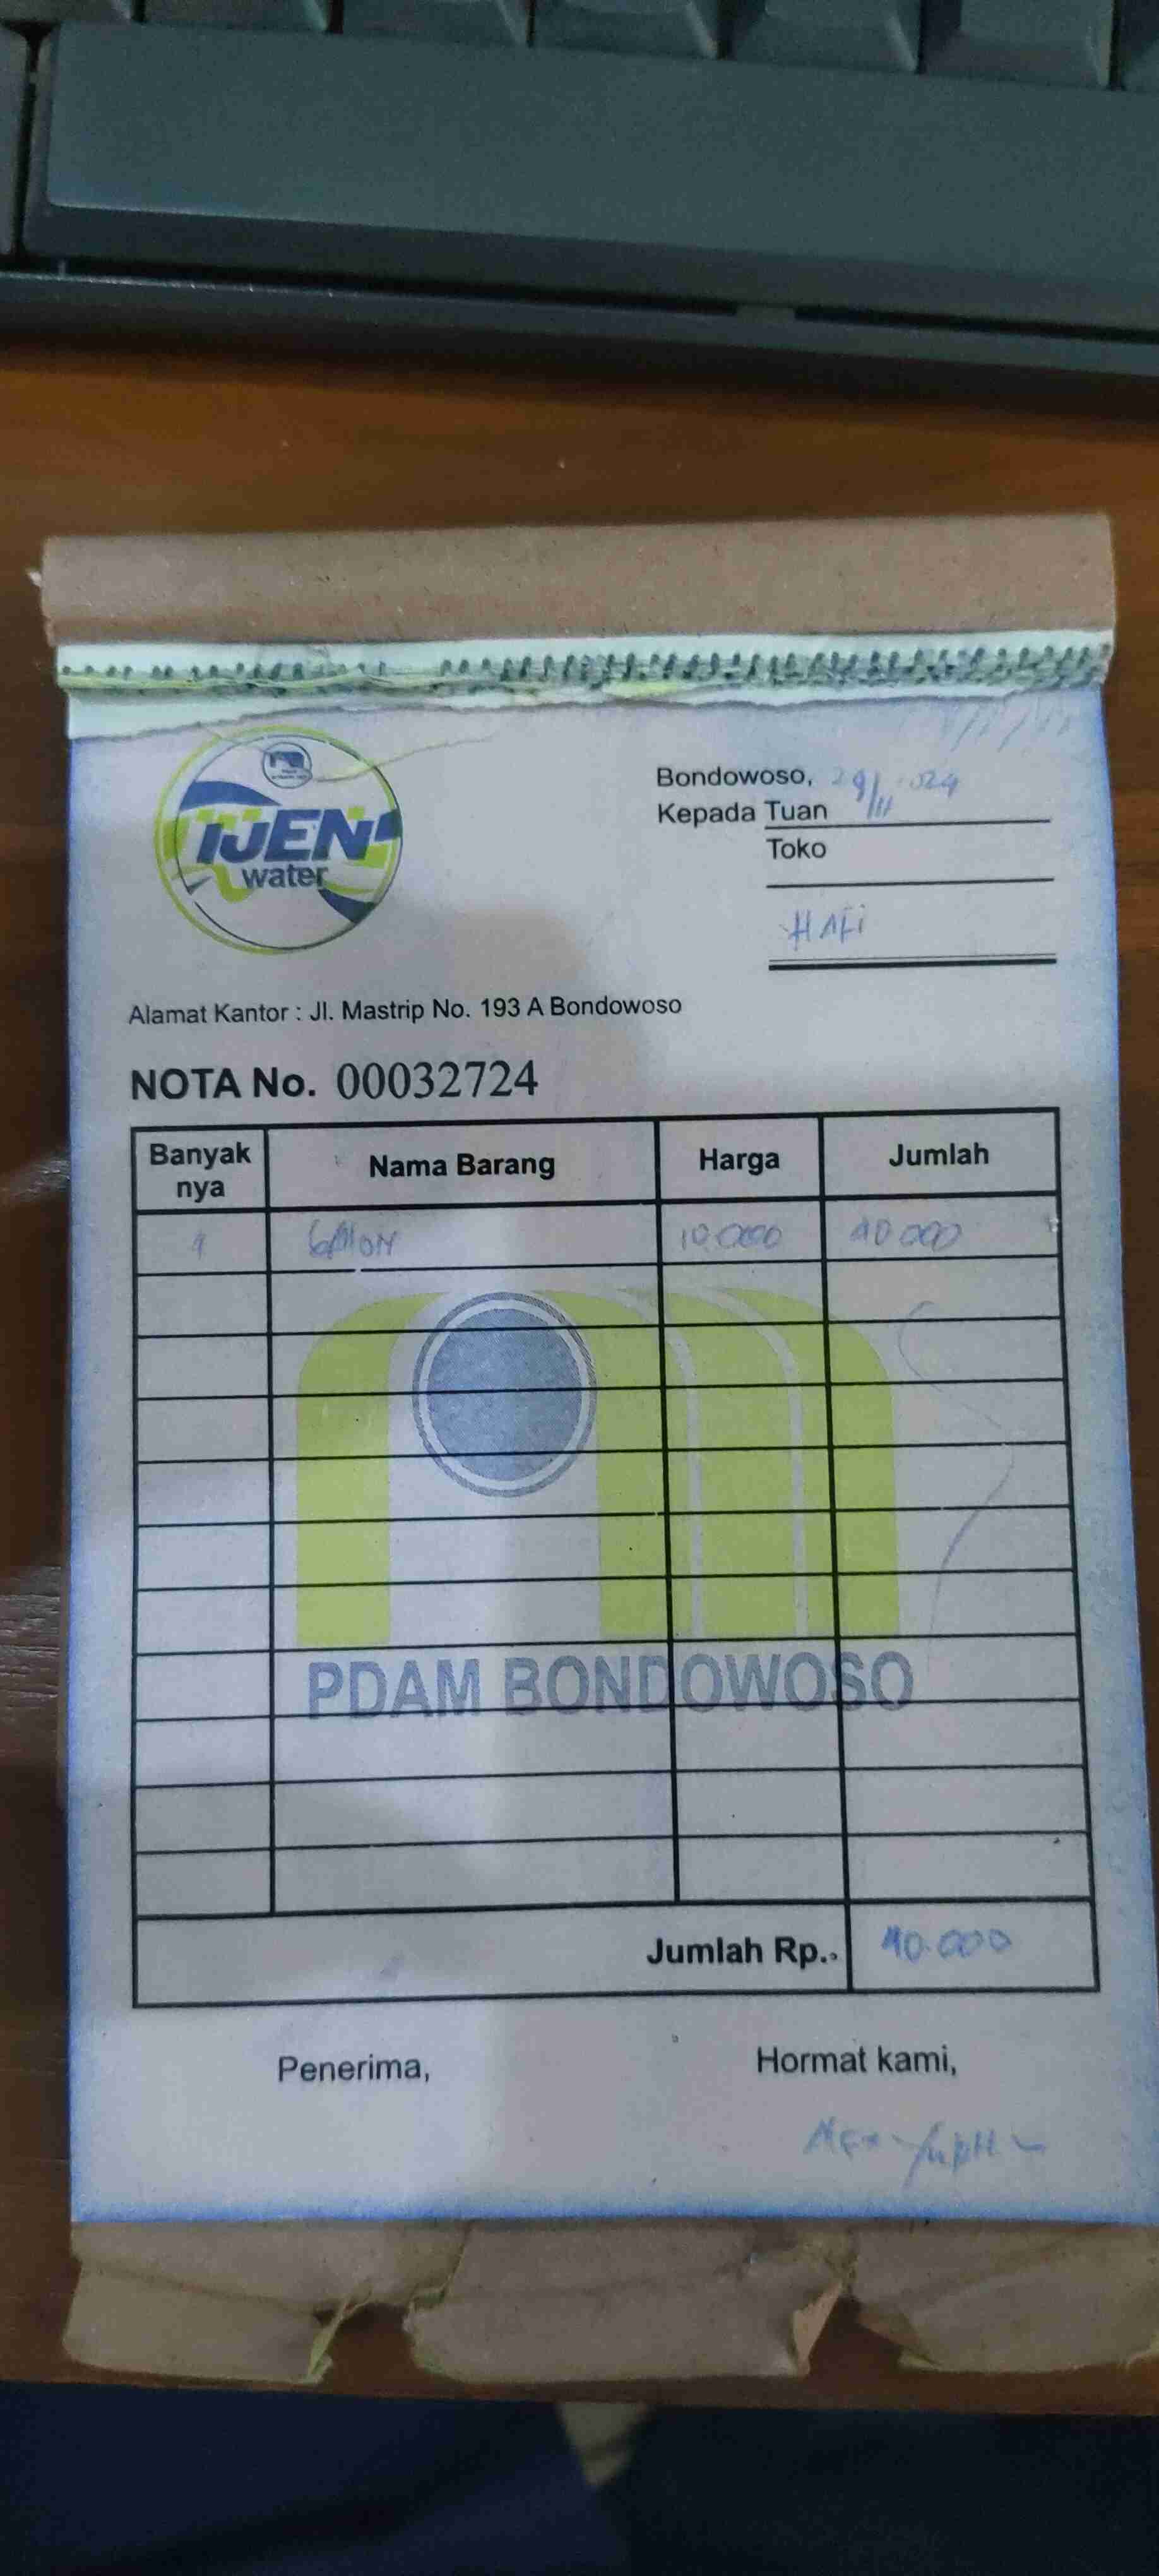 IJEN
water
Bondowoso, 29/11-024
Kepada Tuan
Toko
HAFi
Alamat Kantor : Jl. Mastrip No. 193 A Bondowoso
NOTA No. 00032724
Banyak nya Nama Barang Harga Jumlah
4 GAlON 10.000 40.000
PDAM BONDOWOSO
Jumlah Rp. 40.000
Penerima, Hormat kami,